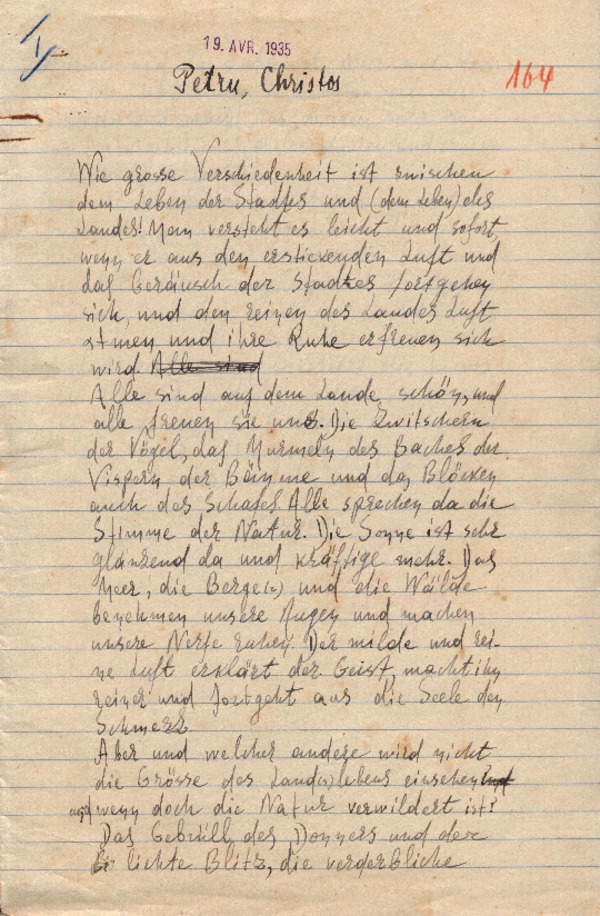 19. AVR. 1935
Petru, Christos
164
Wie grosse Verschiedenheit ist zwischen
dem Leben der Stadtes und (dem Leben) des
Landes! Man versteht es leicht und sofort,
wenn er aus den erstickenden Luft und
das Geräusch der Stadtes fortgehen
sich, und den reinen des Landes Luft
atmen und ihre Ruhe erfreuen sich
wird. Alle sind
Alle sind auf dem Lande schön, und
alle freuen sie uns. Die Zwitschern
der Vögel, das Murmeln des Baches der
Vispern der Bäume und das Blöcken
auch des Schafes Alle sprechen da die
Stimme der Natur. Die Sonne ist sehr
glänzend da und kräftige mehr. Das
Meer, die Berge(n) und die Wälde
benehmen unsere Augen und machen
unsere Nerfe ruhen. Der milde und rei-
ne Luft erklärt der Geist, macht ihn
reiner und fortgeht aus die Seele den
Schmerz
Aber und welcher andere wird nicht
die Grösse des Land(s)lebens einsehen und
und wenn doch die Natur verwildert ist?
Das Gebrüll des Donners und der
lichte Blitz, die verderbliche